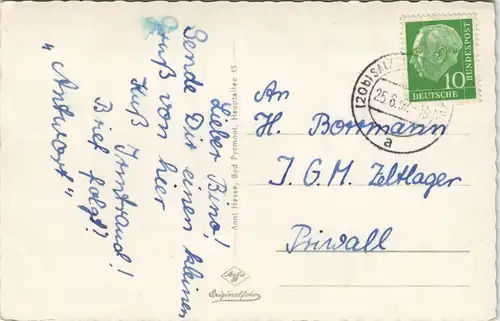 Lieber Bino!
Sende Dir einen kleinen
Gruß von hier
Kuß Irmtraud!
Brief folgt?
"Antwort"
Anni Hesse, Bad Pyrmont, Hauptallee 15
Agfa
Originalfoto
(20b) SALZ
25.6.5
a
10
DEUTSCHE
BUNDESPOST
An
H. Borrmann
J. G. M. Zeltlager
Priwall